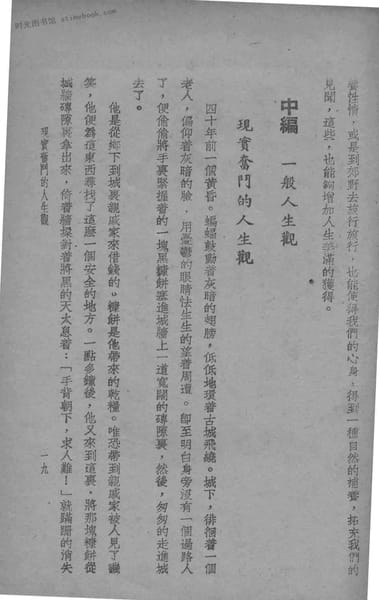 时光图书馆 atimebook.com
養性情，或是到郊野去旅行旅行，也能使得我們的心身，得到一種自然的補養，拓充我們的
見聞，這些，也能夠增加人生美滿的獲得。
中編　一般人生觀
現實奮鬥的人生觀
四十年前一個黃昏。蝙蝠鼓動着灰暗的翅膀，低低地環着古城飛繞。城下，徘徊着一個
老人，偏仰着灰暗的臉，用憂鬱的眼睛怯生生的望着周遭。卽至明白身旁沒有一個過路人
了，便偷偷將手裏緊握着的一塊黑糠餅塞進城牆上一道寬闊的磚隙裏，然後，匆匆的走進城
去了。
他是從鄉下到城裏親戚家來借錢的。糠餅是他帶來的乾糧。唯恐帶到親戚家被人見了譏
笑，他便為這東西尋找了這麼一個安全的地方。一點多鐘後，他又來到這裏，將那塊糠餅從
城牆磚隙裏拿出來，倚着牆根對着將黑的天太息着：「手背朝下，求人難！」就蹣跚的消失
現實奮鬥的人生觀
一九